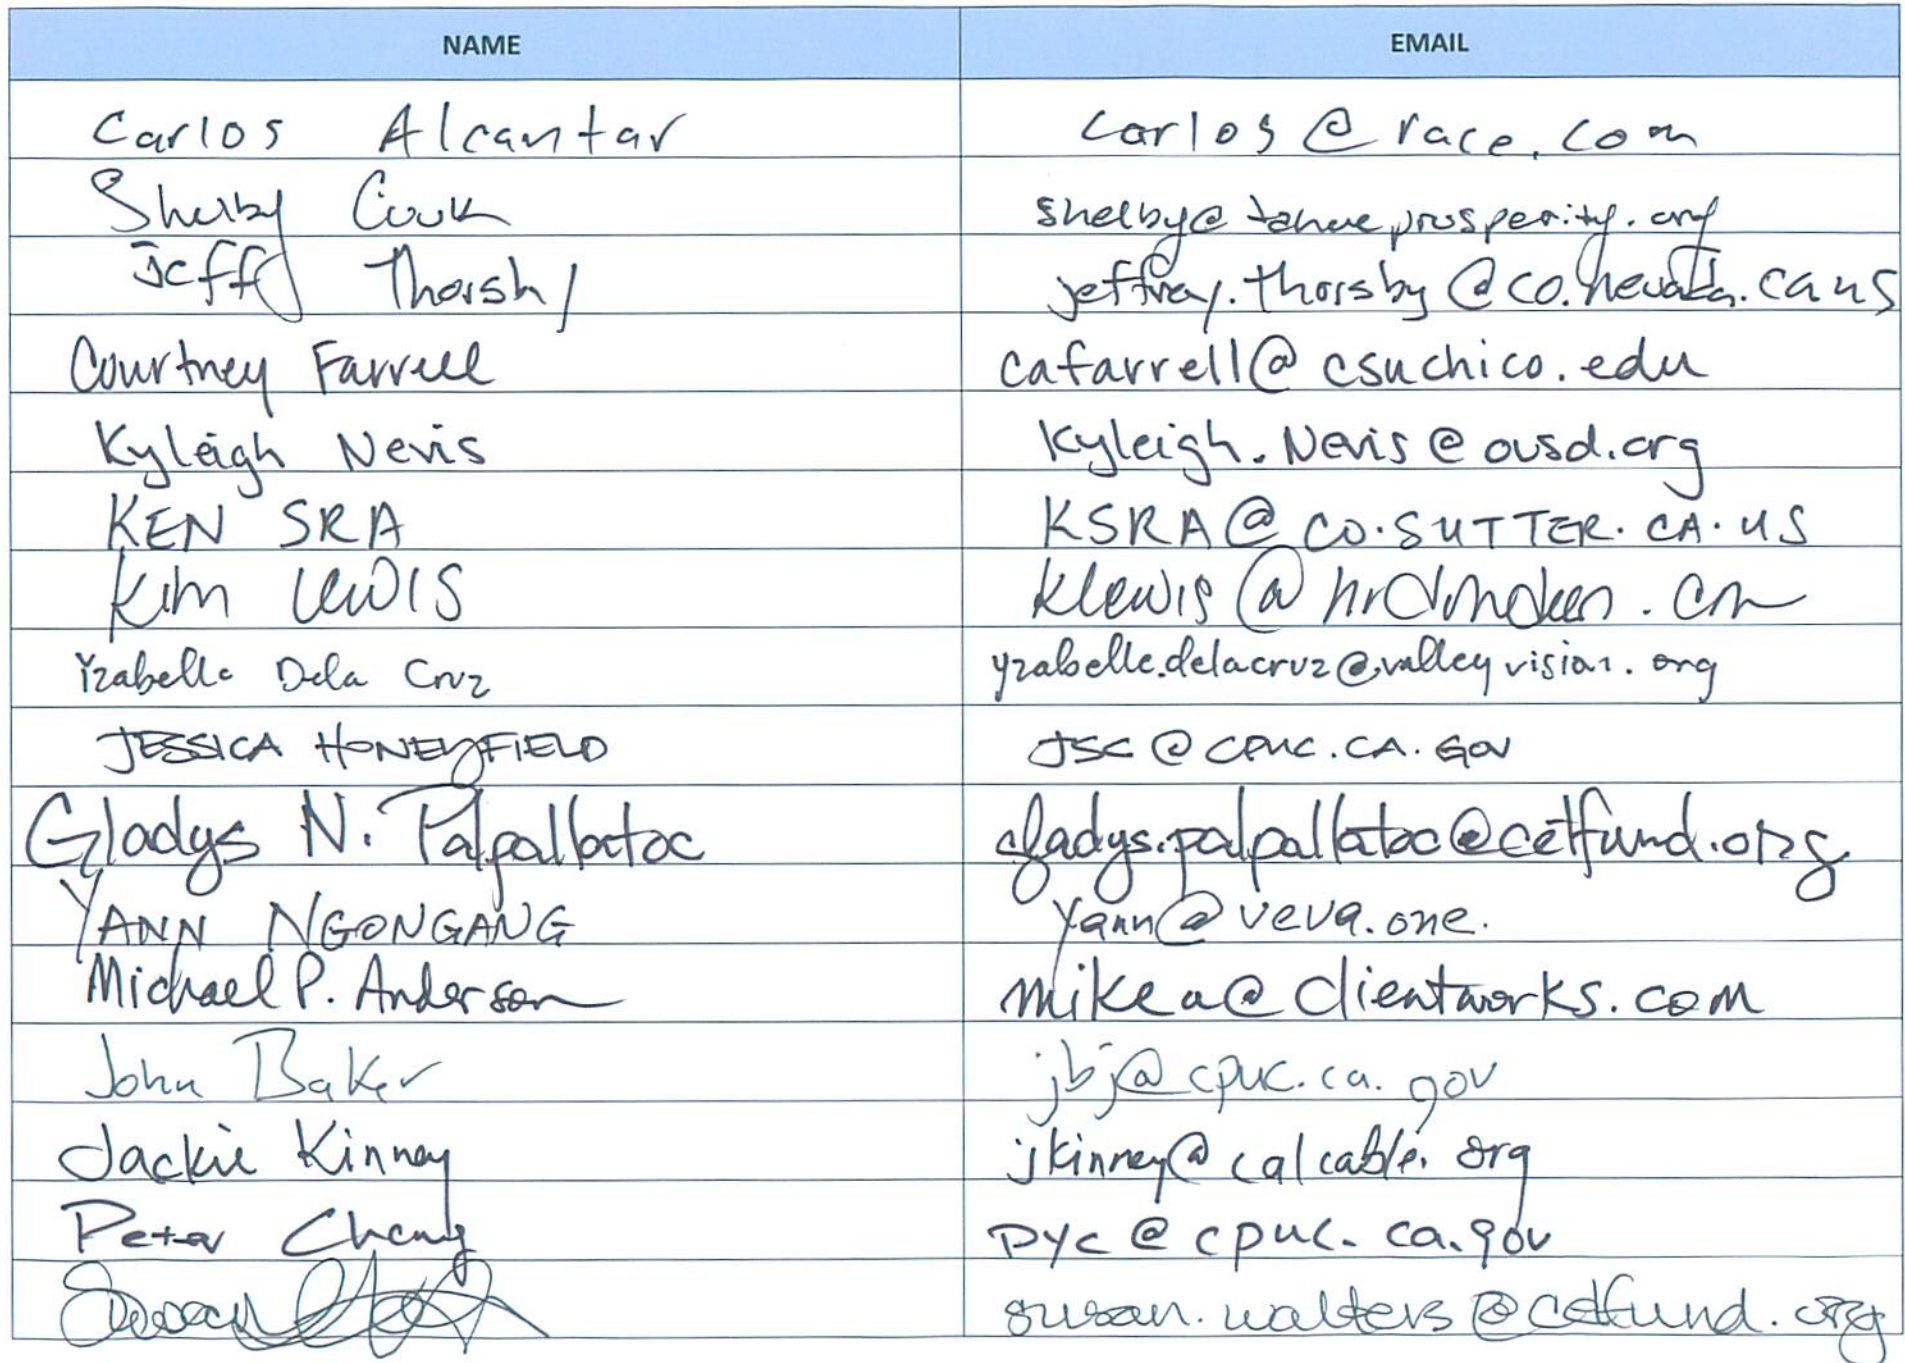 NAME EMAIL
Carlos Alcantar carlos@race.com
Shelby Cook shelby@tahoeprosperity.org
Jeff Thorsby jeffrey.thorsby@co.nevada.ca.us
Courtney Farrell cafarrell@csuchico.edu
Kyleigh Nevis Kyleigh.Nevis@ousd.org
KEN SRA KSRA@CO.SUTTER.CA.US
Kim LEWIS
Yzabelle Dela Cruz yzabelle.delacruz@valleyvision.org
JESSICA HONEYFIELD JSC@CPUC.CA.GOV
Gladys N. Palpallatoc gladys.palpallatoc@cetfund.org
YANN NGONGANG Yann@veva.one.
Michael P. Anderson mikea@clientworks.com
John Baker jbj@cpuc.ca.gov
Jackie Kinney jkinney@calcable.org
Peter Chang pyc@cpuc.ca.gov
Susan susan.walters@cetfund.org